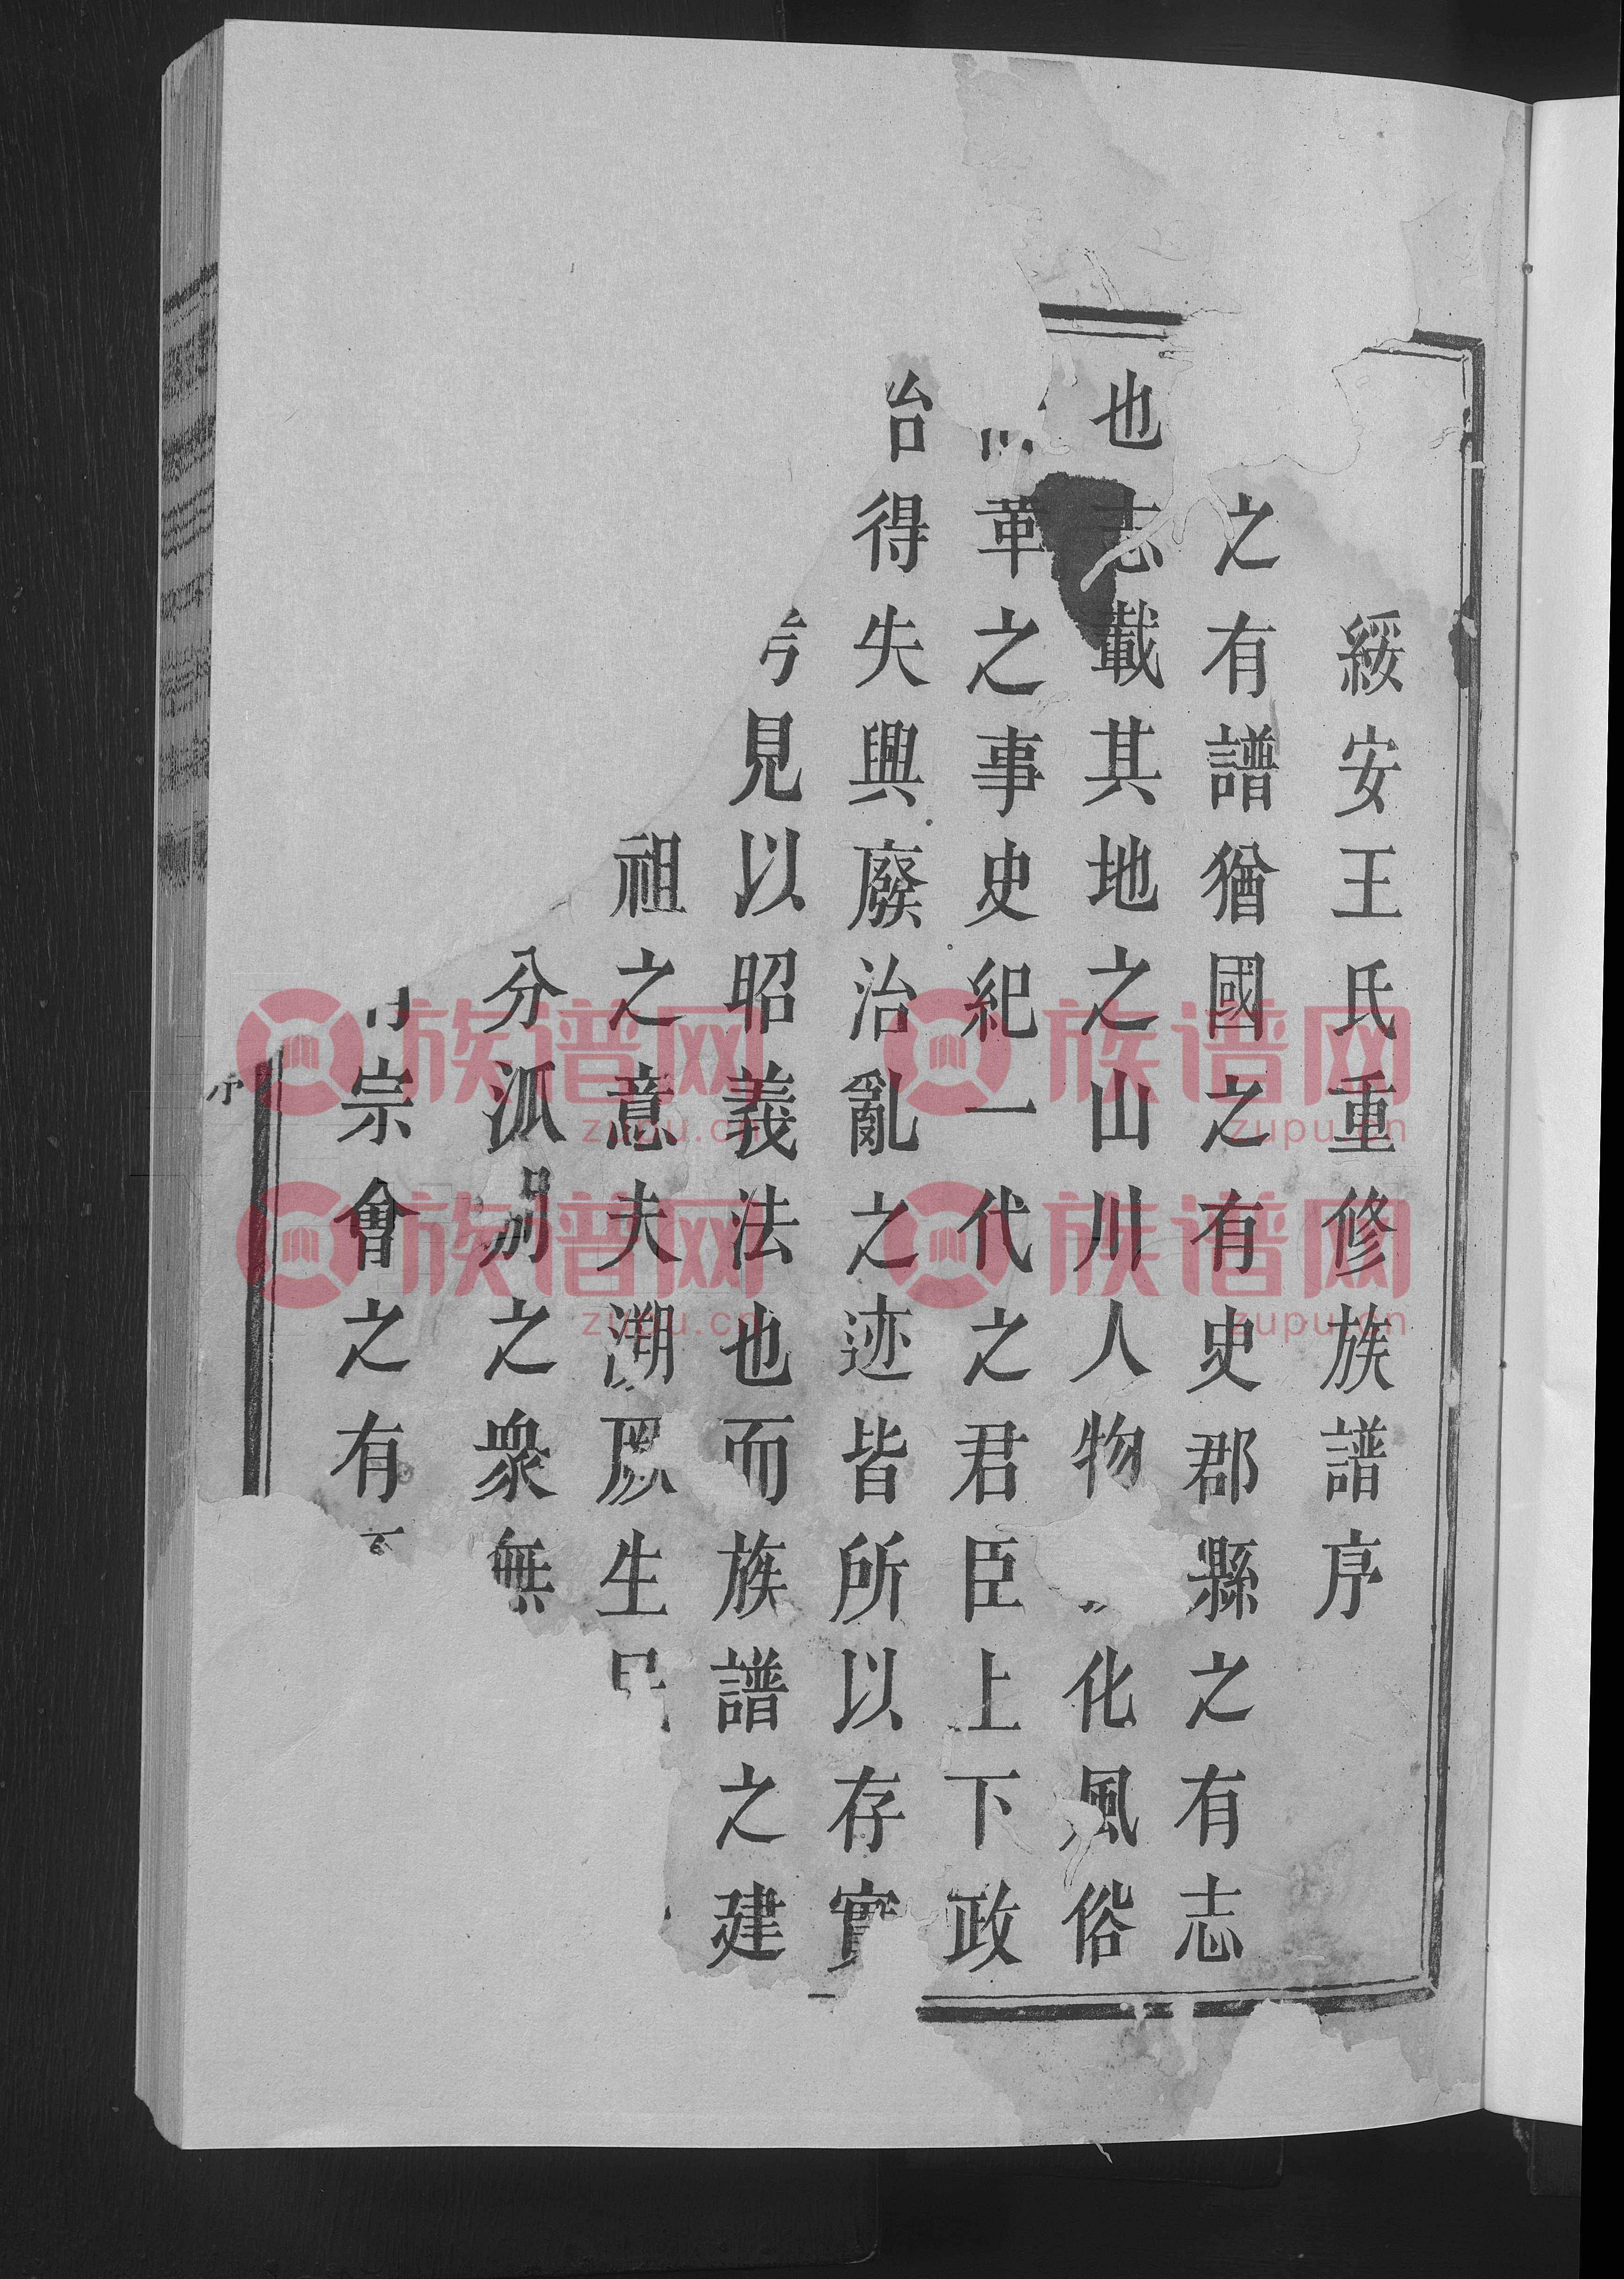 綏安王氏重修族譜序
之有譜猶國之有史郡縣之有志
也志載其地之山川人物化風俗
革之事史紀一代之君臣上下政
治得失興廢治亂之迹皆所以存實
見以昭義法也而族譜之建
祖之意夫溯厥生
分派別之衆無
宗會之有
序
族谱网
zupu.cn
族谱网
zupu.cn
族谱网
zupu.cn
族谱网
zupu.cn